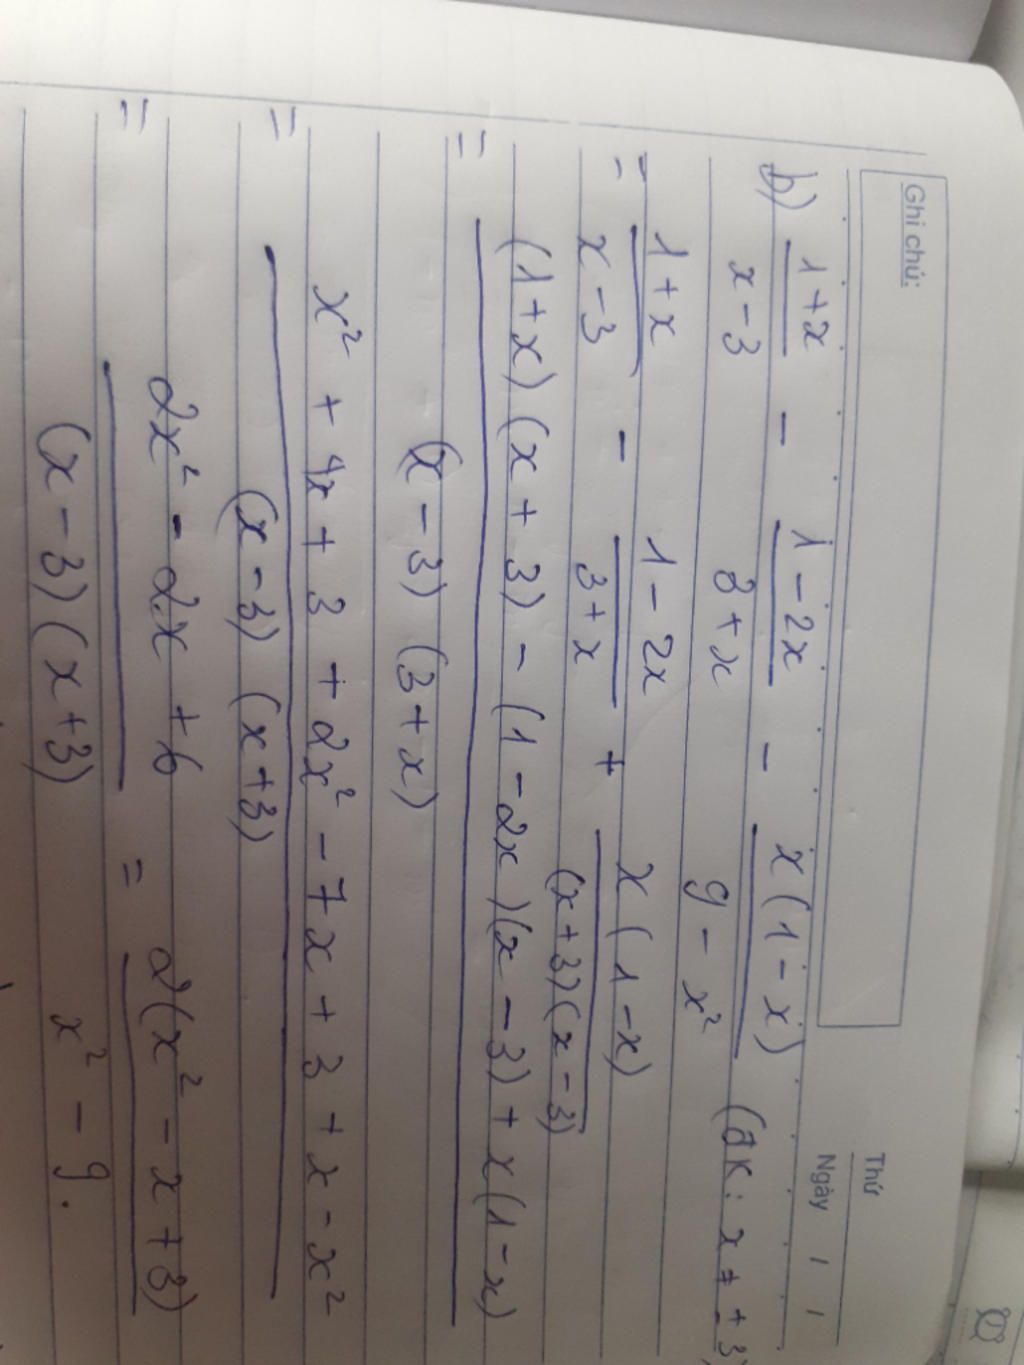 Thứ
Ghi chú:
Ngày / /
b) \frac{1+x}{x-3} - \frac{1-2x}{3+x} - \frac{x(1-x)}{9-x²} (đK: x ≠ ±3)
= \frac{1+x}{x-3} - \frac{1-2x}{3+x} + \frac{x(1-x)}{(x+3)(x-3)}
= \frac{(1+x)(x+3) - (1-2x)(x-3) + x(1-x)}{(x-3)(3+x)}
= \frac{x² + 4x + 3 + 2x² - 7x + 3 + x - x²}{(x-3)(x+3)}
= \frac{2x² - 2x + 6}{(x-3)(x+3)} = \frac{2(x² - x + 3)}{x² - 9}.